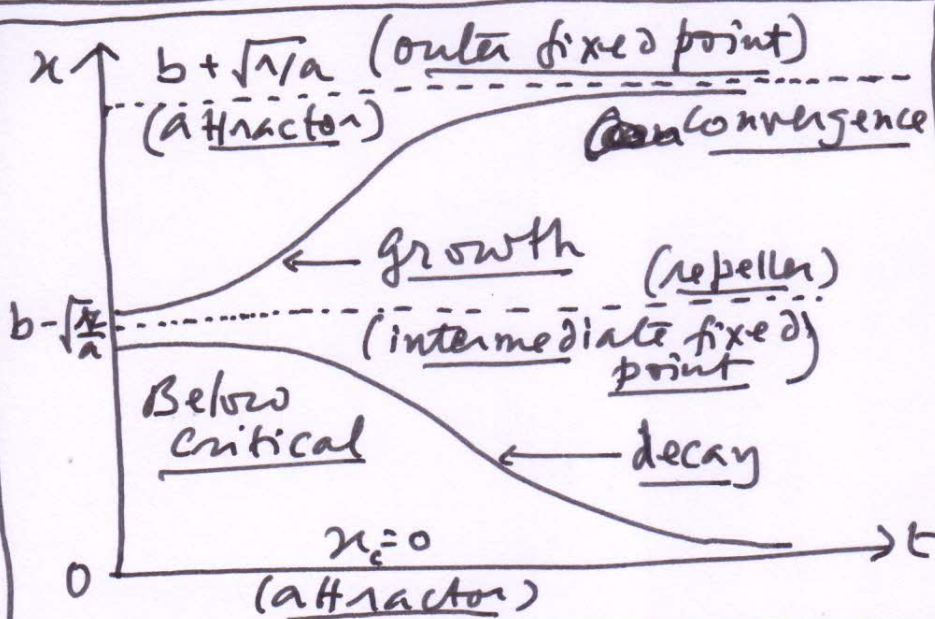 x
b + √r/a (outer fixed point)
(attractor)
Convergence
growth
(repeller)
b - √r/a
(intermediate fixed
point)
Below
critical
decay
x_c = 0
t
0
(attractor)